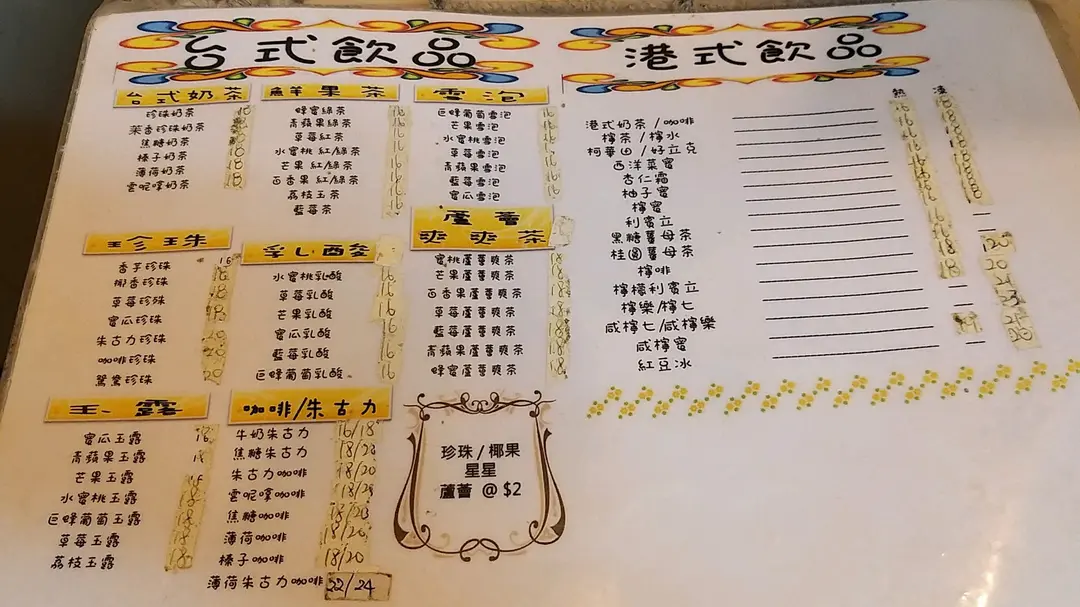 台式飲品
台式奶茶
珍珠奶茶
茉香珍珠奶茶
焦糖奶茶
榛子奶茶 18
薄荷奶茶 18
雲呢嗱奶茶 18
鮮果茶
蜂蜜綠茶 16
青蘋果綠茶 16
草莓紅茶 16
水蜜桃 紅/綠茶 16
芒果 紅/綠茶 16
百香果 紅/綠茶 16
荔枝玉茶 16
藍莓茶 16
雪泡
巨蜂葡萄雪泡 16
芒果雪泡 16
水蜜桃雪泡 16
草莓雪泡 16
青蘋果雪泡 16
藍莓雪泡 16
蜜瓜雪泡 16
珍珠
香芋珍珠 16
椰香珍珠 18
草莓珍珠 18
蜜瓜珍珠 18
朱古力珍珠 20
咖啡珍珠 20
鴛鴦珍珠 20
乳酸
水蜜桃乳酸 16
草莓乳酸 16
芒果乳酸 16
蜜瓜乳酸 16
藍莓乳酸 16
巨蜂葡萄乳酸 16
蘆薈
爽爽茶
蜜桃蘆薈爽茶 18
芒果蘆薈爽茶 18
百香果蘆薈爽茶 18
草莓蘆薈爽茶 18
藍莓蘆薈爽茶 18
青蘋果蘆薈爽茶 18
蜂蜜蘆薈爽茶 18
玉露
蜜瓜玉露 16
青蘋果玉露
芒果玉露
水蜜桃玉露 18
巨蜂葡萄玉露 18
草莓玉露 18
荔枝玉露 18
咖啡/朱古力
牛奶朱古力 16/18
焦糖朱古力
朱古力咖啡 18/20
雲呢嗱咖啡
焦糖咖啡
薄荷咖啡 18/20
榛子咖啡 18/20
薄荷朱古力咖啡 22/24
珍珠/椰果
星星
蘆薈 @ $2
港式飲品
熱 凍
港式奶茶/咖啡
檸茶/檸水
柯華田/好立克
西洋菜蜜
杏仁霜
柚子蜜
檸蜜
利賓立
黑糖薑母茶
桂圓薑母茶
檸啡
檸檬利賓立
檸樂/檸七
咸檸七/咸檸樂
咸檸蜜
紅豆冰